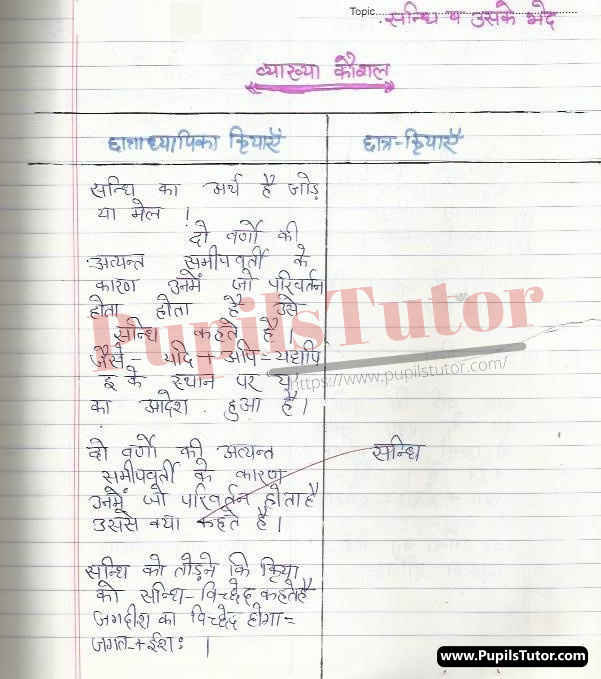 Topic.....सन्धि व उसके भेद
व्याख्या कौशल
छात्राध्यापिका क्रियाएँ
छात्र-क्रियाएँ
सन्धि का अर्थ है जोड़
या मेल ।
दो वर्णो की
अत्यन्त समीपवर्ती के
कारण उनमें जो परिवर्तन
होता होता है उसे
सन्धि कहते है ।
जैसे - यदि + अपि = यद्यपि
इ के स्थान पर य्
का आदेश हुआ है ।
दो वर्णो की अत्यन्त
समीपवर्ती के कारण
उनमें जो परिवर्तन होता है
उससे क्या कहते है ।
सन्धि
सन्धि को तोड़ने कि क्रिया
को सन्धि-विच्छेद कहते है
जगदीश का विच्छेद होगा =
जगत + ईश: ।
PupilsTutor
https://www.pupilstutor.com/
www.PupilsTutor.Com